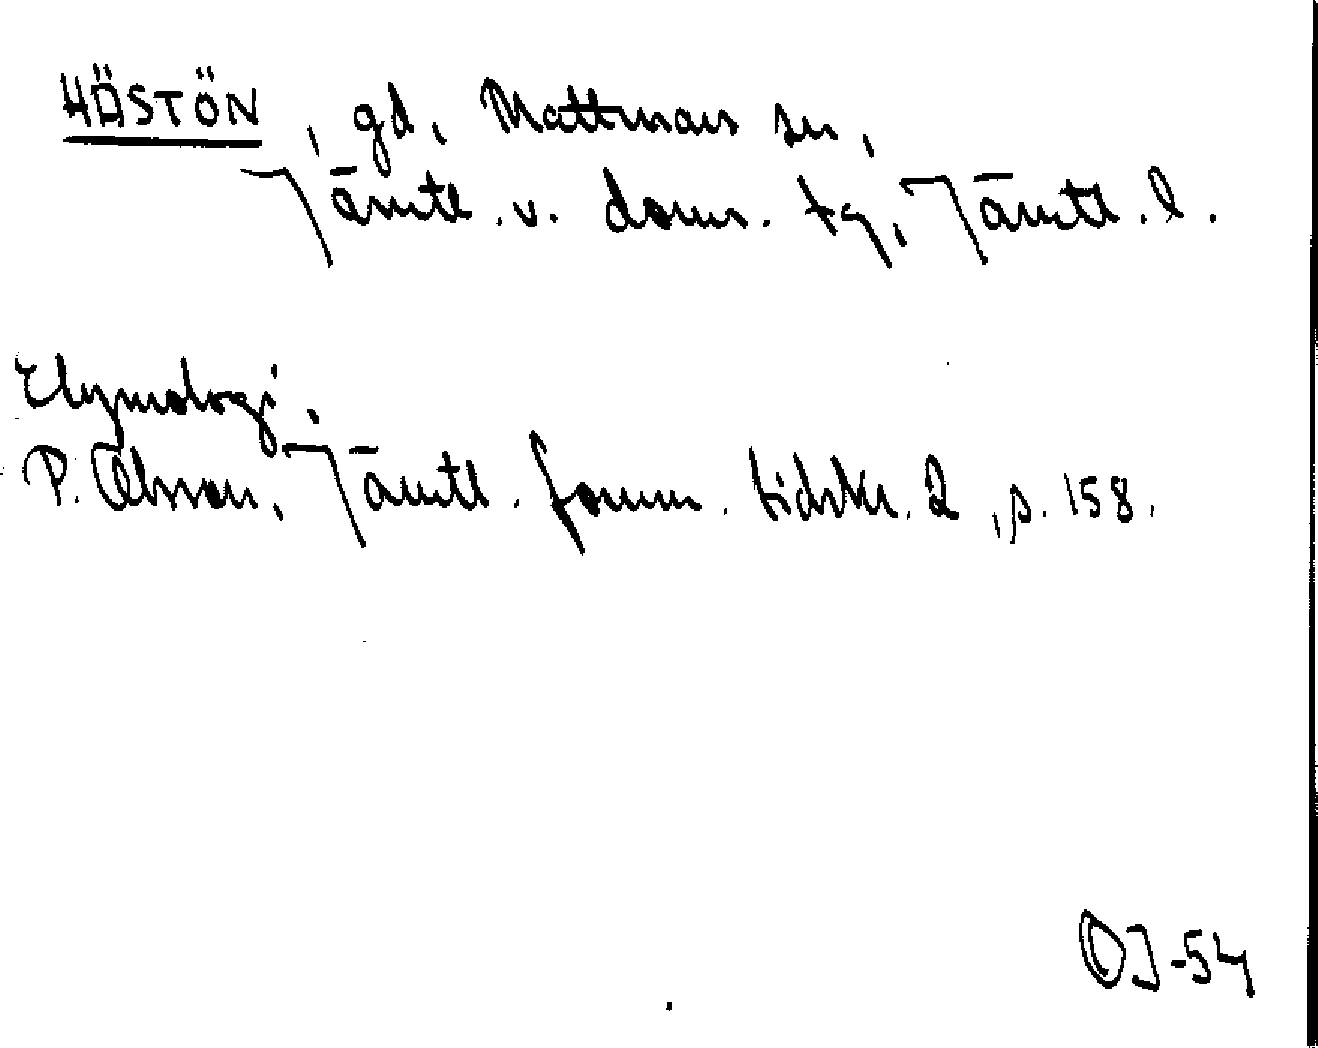 HÖSTÖN, gd, Mattmars sn,
Jämtl. v. doms. tg, Jämtl. l.
Etymologi.
P. Olsson, Jämtl. fornm. tidskr. 2, s. 158.
OJ-54